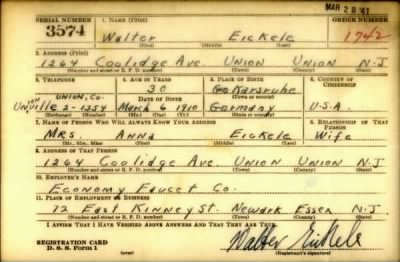 MAR 28 '41
SERIAL NUMBER 1. NAME (Print) ORDER NUMBER
3574 Walter Eickele 1742
(First) (Middle) (Last)
2. ADDRESS (Print)
1264 Coolidge Ave. Union Union N.J
(Number and street or R. F. D. number) (Town) (County) (State)
3. TELEPHONE 4. AGE IN YEARS 5. PLACE OF BIRTH 6. COUNTRY OF CITIZENSHIP
UNION, Co. 30 Karlsruhe
DATE OF BIRTH (Town or county)
Unville 2-1254 March 6 1910 Germany U.S.A.
(Exchange) (Number) (Mo.) (Day) (Yr.) (State or country)
7. NAME OF PERSON WHO WILL ALWAYS KNOW YOUR ADDRESS 8. RELATIONSHIP OF THAT PERSON
Mrs. Anna Eickele Wife
(Mr., Mrs., Miss) (First) (Middle) (Last)
9. ADDRESS OF THAT PERSON
1264 Coolidge Ave. Union Union N.J
(Number and street or R. F. D. number) (Town) (County) (State)
10. EMPLOYER'S NAME
Economy Faucet Co.
11. PLACE OF EMPLOYMENT OR BUSINESS
72 East Kinney St. Newark Essex N.J
(Number and street or R. F. D. number) (Town) (County) (State)
I AFFIRM THAT I HAVE VERIFIED ABOVE ANSWERS AND THAT THEY ARE TRUE.
REGISTRATION CARD
D. S. S. Form 1 Walter Eickele
(Registrant's signature)